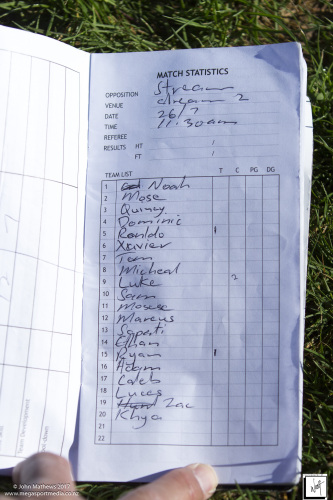 MATCH STATISTICS
OPPOSITION Stream
VENUE stream 2
DATE 26/7
TIME 11:30am
REFEREE
RESULTS HT /
FT /
TEAM LIST T C PG DG
1 Noah
2 Mose
3 Quincy
4 Dominic
5 Ronaldo 1
6 Xavier
7 Tom
8 Micheal
9 Luke 2
10 Sam
11 Mosese
12 Marcus
13 Sapati
14 Ethan
15 Ryan 1
16 Adam
17 Caleb
18 Lucas
19 Zac
20 Khya
21
22
© John Mathews 2017
www.megasportmedia.co.nz